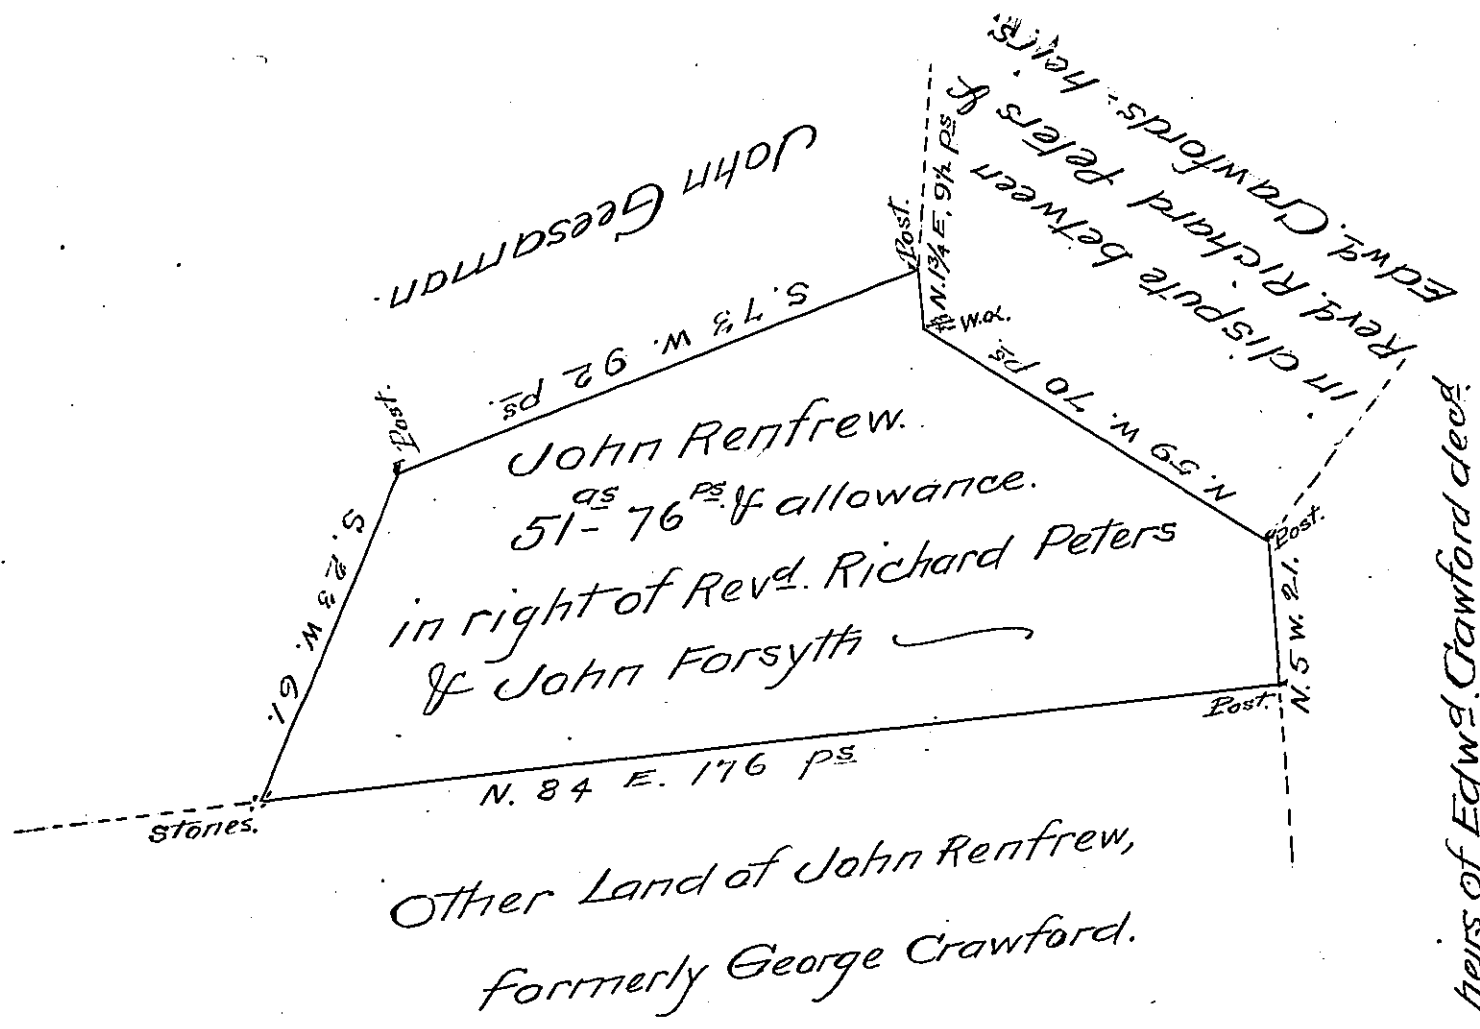 John Geesarman.
in dispute between
Revd. Richard Peters &
Edwd. Crawfords heirs.
Post.
N. 1¾ E, 9½ ps
W.o.
S. 73 W. 92 ps.
Post.
N. 59 W. 70 ps
John Renfrew.
51 as 76 ps. & allowance.
in right of Revd. Richard Peters
& John Forsyth
S. 23 W. 61.
Post.
N. 5 W. 21.
Post.
N. 84 E. 176 ps
Stones.
Other Land of John Renfrew,
formerly George Crawford.
heirs of Edwd. Crawford decd.